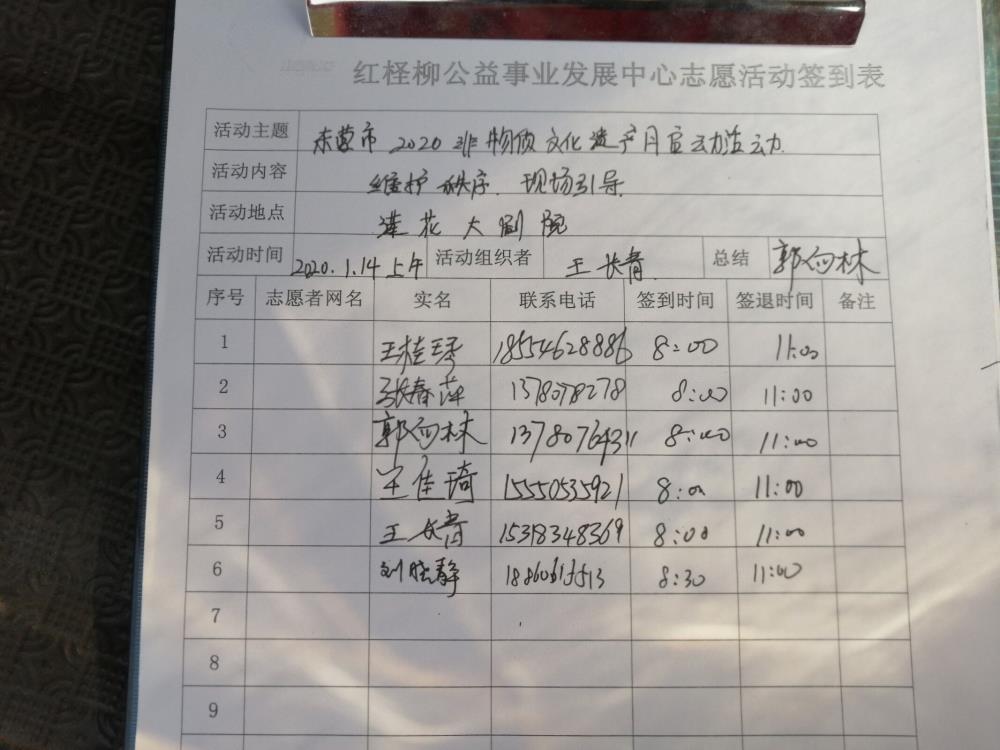 红柽柳公益事业发展中心志愿活动签到表
活动主题 东营市2020非物质文化遗产月启动活动
活动内容 维护秩序、现场引导
活动地点 莲花大剧院
活动时间 2020.1.14上午 活动组织者 王长青 总结 郭向林
序号 志愿者网名 实名 联系电话 签到时间 签退时间 备注
1 王桂琴 18554628886 8:00 11:00
2 张春萍 1378078278 8:00 11:00
3 郭向林 13780764311 8:00 11:00
4 佳琦 15550535921 8:00 11:00
5 王长青 15318348369 8:00 11:00
6 刘晓静 8:30 11:00
7
8
9